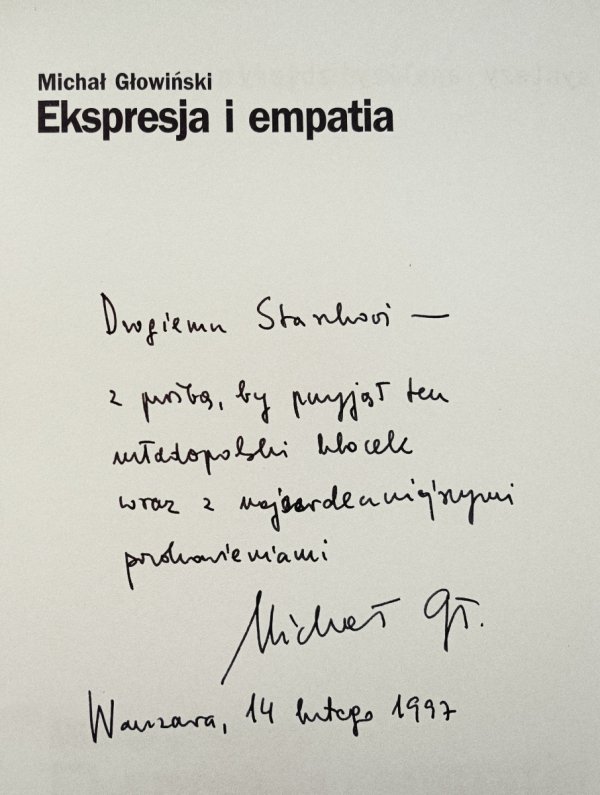 Michał Głowiński
Ekspresja i empatia
Drogiemu Staszkowi —
z prośbą, by przyjął ten
młodopolski klocek
wraz z najserdeczniejszymi
pozdrowieniami
Michał Gł.
Warszawa, 14 lutego 1997